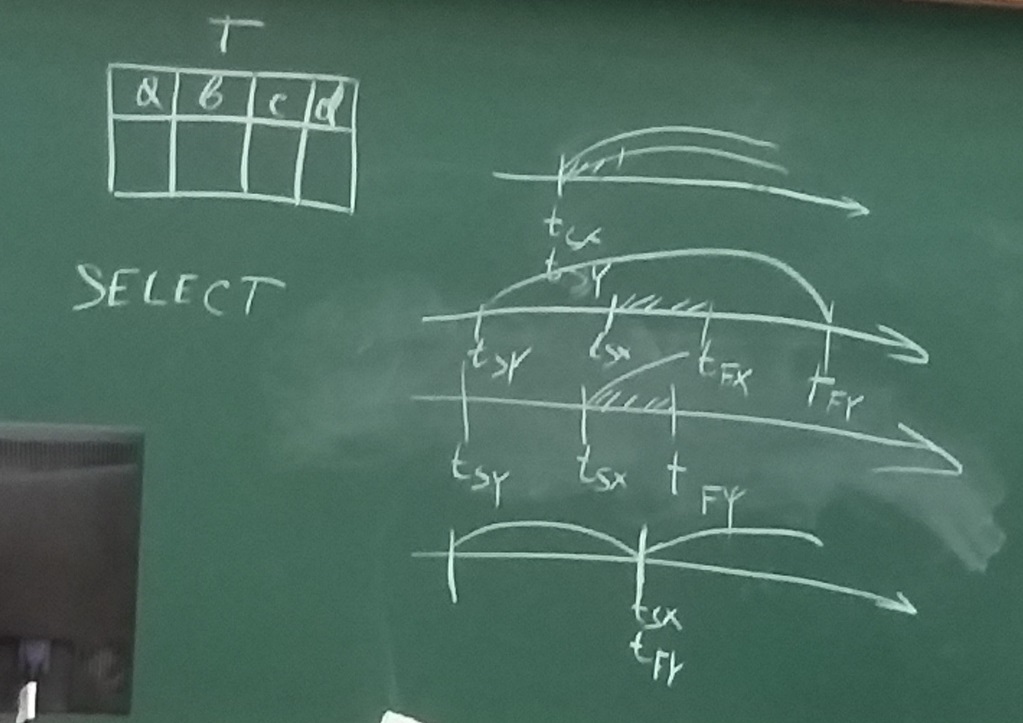 T
a b c d
SELECT
tsx
tsy
tsy tsx tFX tFY
tsy tsx t FY
tsx
tFY